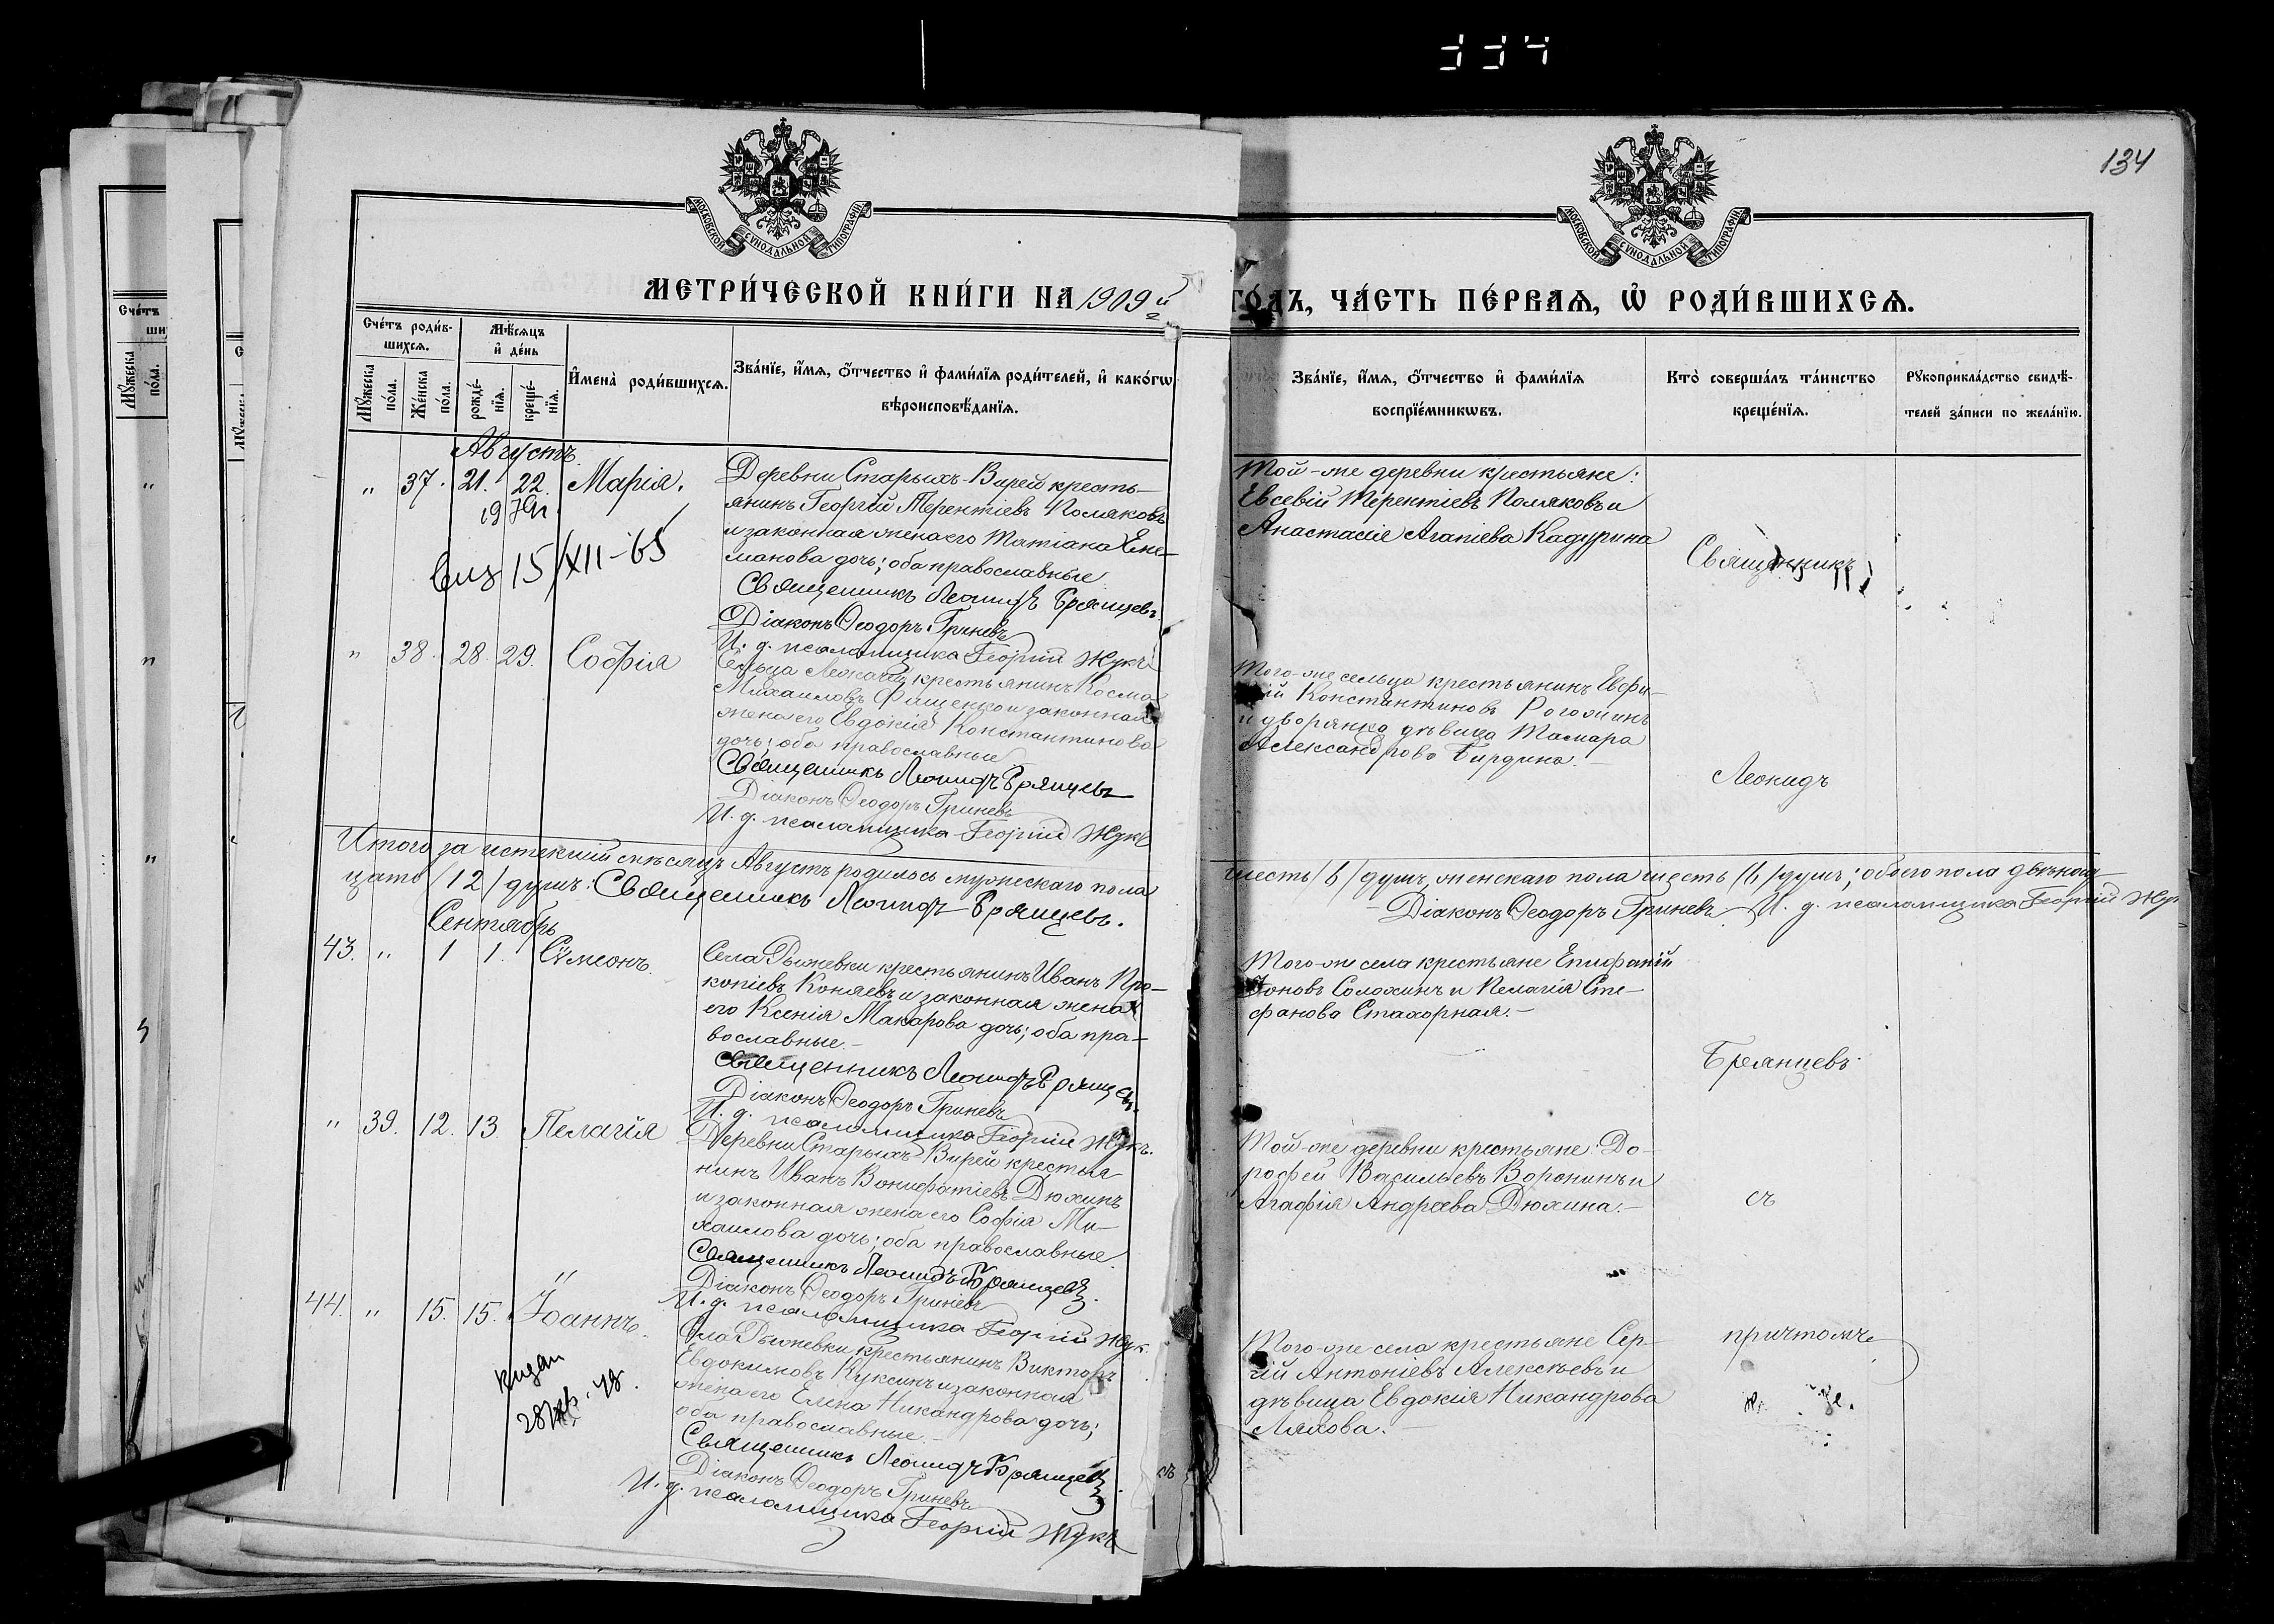 334
134
МОСКОВСКОЙ СѴНОДАЛЬНОЙ ТИПОГРАФІИ
МОСКОВСКОЙ СѴНОДАЛЬНОЙ ТИПОГРАФІИ
МЕТРИ́ЧЕСКОЙ КНИ́ГИ НА 1909 й
ГО́ДЪ, ЧА́СТЬ ПЕ́РВАѦ, Ѡ҆ РОДИ́ВШИХСѦ.
Сче́тъ роди́в-
шихсѧ.
Мꙋ́жеска по́ла.
Же́нска по́ла.
Мѣ́сѧцъ и҆ де́нь
рожде́-
нїѧ.
креще́-
нїѧ.
И҆мена̀ роди́вшихсѧ.
Зва́нїе, и҆́мѧ, ѻ҆́тчество и҆ фами́лїѧ роди́телей, и҆ како́гѡ
вѣроисповѣ́данїѧ.
Зва́нїе, и҆́мѧ, ѻ҆́тчество и҆ фами́лїѧ
воспрїе́мникѡвъ.
Кто̀ соверша́лъ та́инство
креще́нїѧ.
Рꙋкоприкла́дство свидѣ́-
телей за́писи по жела́нїю.
Августъ
" 37. 21. 22. Марія.
Деревни Старыхъ-Вирей кресть-
янинъ Георгій Терентіевъ Поляковъ
и законная жена его Татіана
манова дочь; оба православные
Священникъ Леонидъ Брянцевъ.
Діаконъ Ѳеодоръ Гриневъ
И. д. псаломщика Георгій Жукъ
Той-же деревни крестьяне:
Евсевій Терентіевъ Поляковъ и
Анастасія Агапіева Кадурина
Священникъ
15/XII-65
" 38. 28. 29. София
Сельца крестьянинъ Косма
Михаиловъ Фищенко и законная
жена его Евдокія Константинова
дочь; оба православные
Священникъ Леонидъ Брянцевъ
Діаконъ Ѳеодоръ Гриневъ
И. д. псаломщика Георгій Жукъ
Того-же сельца крестьянинъ Евфи-
мій Константиновъ Рогожинъ
и дворянка дѣвица Тамара
Александрова Бирдина.-
Леонидъ
Итого за истекшій мѣсяцъ Августъ родилось мужескаго пола
шесть /6/ душъ, женскаго пола шесть /6/ душъ; обоего пола двѣнад-
цать /12/ душъ: Священникъ Леонидъ Брянцевъ.
Діаконъ Ѳеодоръ Гриневъ. И. д. псаломщика Георгій
Сентябрь
43. " 1 1. Сѵмеонъ.
Села Рыжевки крестьянинъ Иванъ Про-
копіевъ Коняевъ и законная жена
его Ксенія Макарова дочь; оба пра-
вославные.-
Священникъ Леонидъ Брянцевъ.
Діаконъ Ѳеодоръ Гриневъ
И. д. псаломщика Георгій Жукъ.
Того-же села крестьяне Епифаній
Іоновъ Солохинъ и Пелагія Сте-
фанова Стахорная.-
Брянцевъ
" 39. 12. 13. Пелагія
Деревни Старыхъ-Вирей крестья-
нинъ Иванъ Вонифатіевъ Дюхинъ
и законная жена его Софія Ми-
хаилова дочь; оба православные.
Священникъ Леонидъ Брянцевъ.
Діаконъ Ѳеодоръ Гриневъ
И. д. псаломщика Георгій Жук.
Той-же деревни крестьяне: До-
роѳей Васильевъ Воронинъ и
Агафія Андреева Дюхина.-
съ
44. " 15. 15. Іоаннъ.
Села Рыжевки крестьянинъ Викторъ
Евдокимовъ Куксинъ и законная
жена его Елена Никандрова дочь;
оба православные.-
Священникъ Леонидъ Брянцевъ.
Діаконъ Ѳеодоръ Гриневъ
И. д. псаломщика Георгій Жукъ
Того-же села крестьяне Сер-
гій Антоніевъ Алексѣевъ и
дѣвица Евдокія Никандрова
Ляхова.-
причтомъ